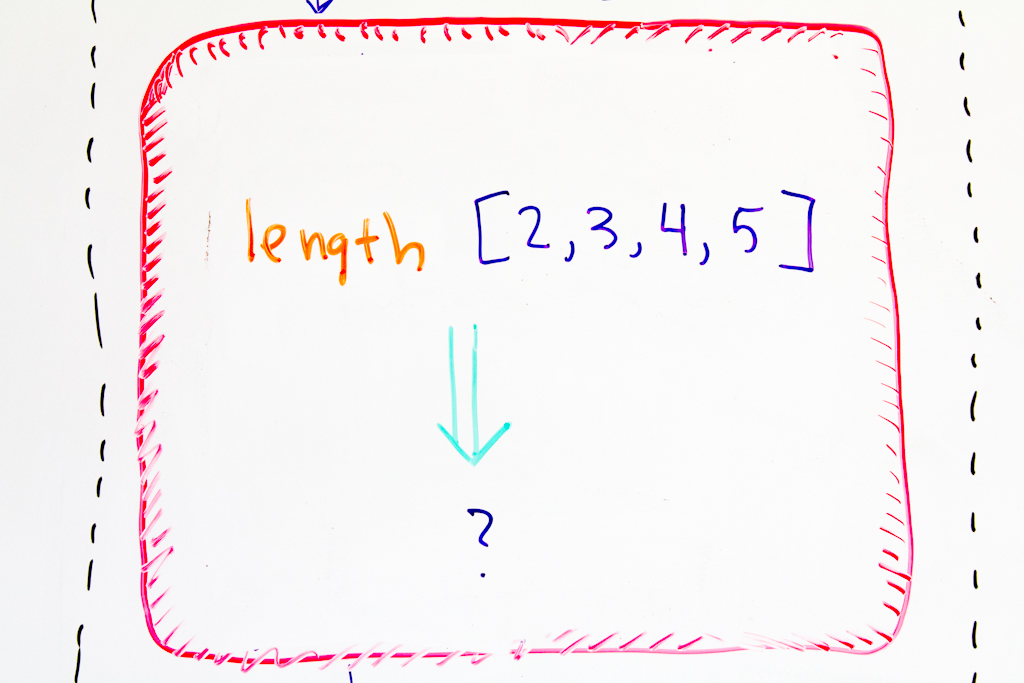 length [2,3,4,5]
?